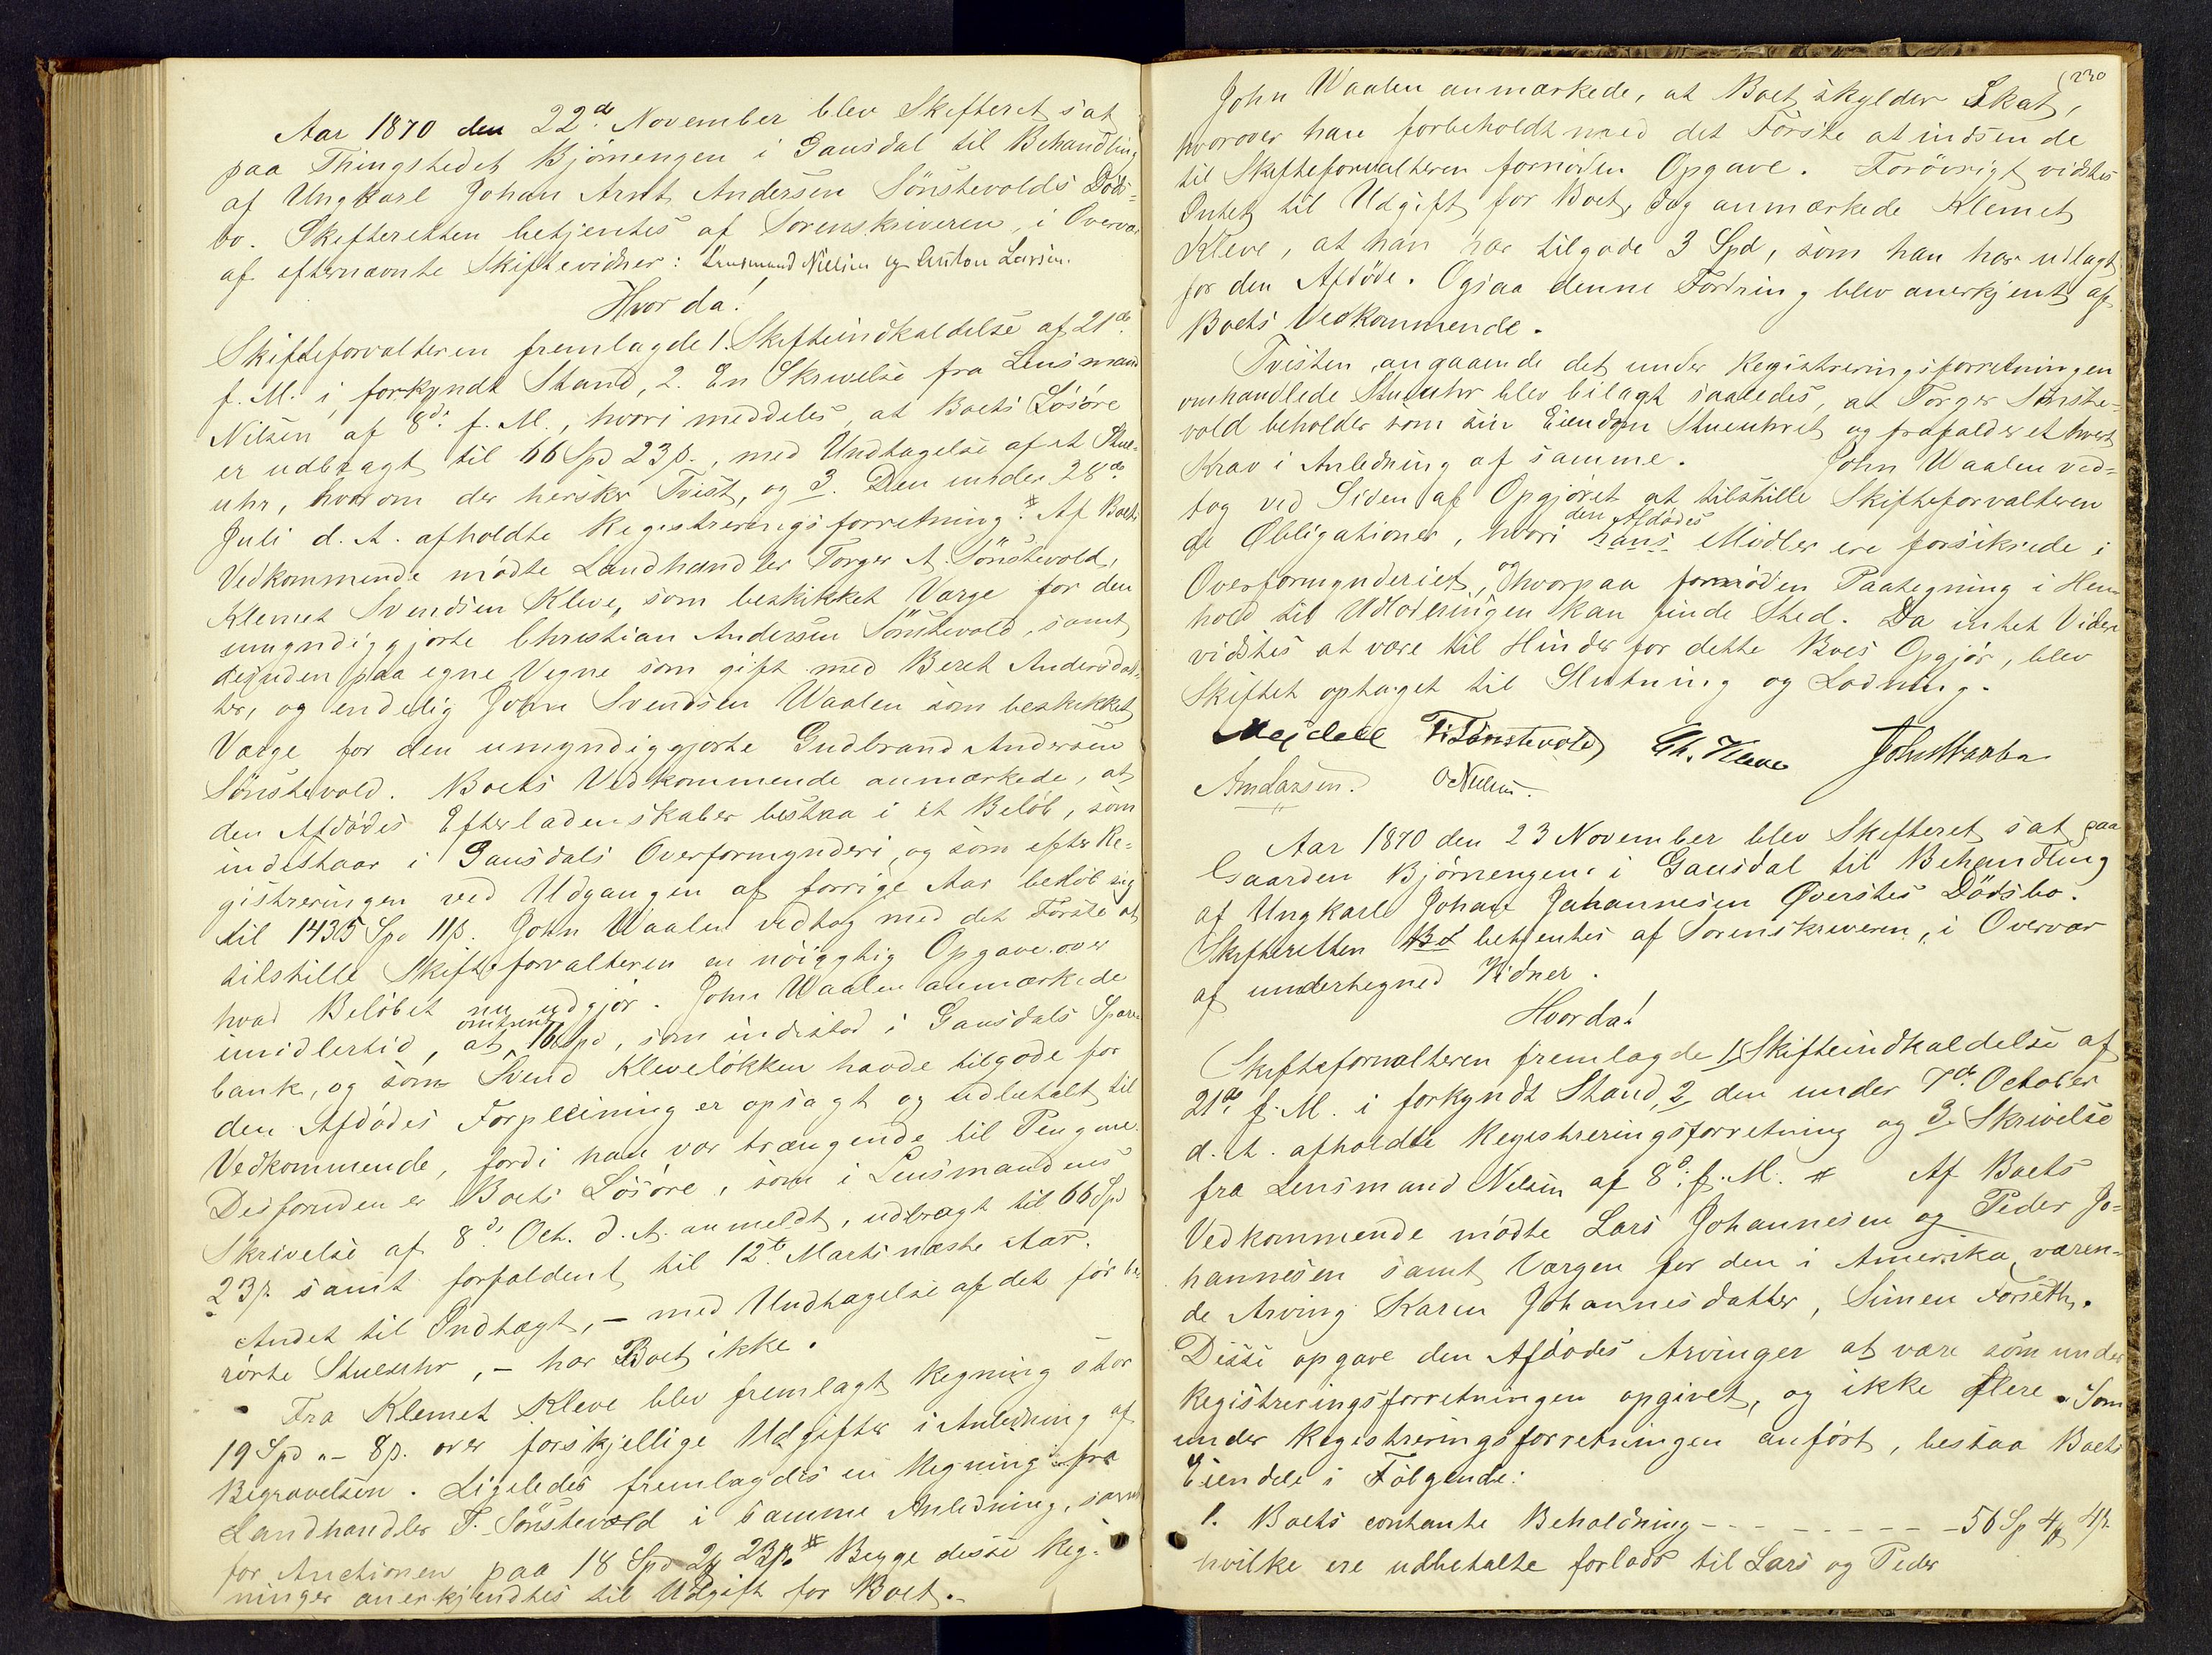 Aar 1870 den 22de November blev Skifteret sat
paa Thingstedet Bjørnengen i Gausdal til Behandling
af Ungkarl Johan Arnt Andersen Sönstevolds Døds=
bo. Skifteretten betjentes af Sorenskriveren, i Overvær
af efternævnte Skiftevidner: Lensmand Nielsen og Anton Larsen.
Hvor da!
Skifteforvalteren fremlagde 1. Skifteindkaldelse af 21de
f. M. i forkyndt Stand, 2. En Skrivelse fra Lensmand
Nilsen af 8de f. M., hvori meddeles, at Boets Løsöre
er udbragt til 66 Spd 23 ß., med Undtagelse af et Stue-
uhr, hvorom der hersker Tvist, og 3. Den under 28de
Juli d. A. afholdte Registreringsforretning. # Af Boets
Vedkommende mödte Landhandler Torger A. Sönstevold,
Klemet Svendsen Kleve, som beskikket Værge for den
umyndiggjorte Christian Andersen Sönstevold, samt
desuden paa egne Vegne som gift med Beret Andersdat-
ter, og endelig John Svendsen Waalen som beskikket
Værge for den umyndiggjorte Gudbrand Andersen
Sönstevold. Boets Vedkommende anmærkede, at
den Afdödes Efterladenskaber bestaa i et Belöb, som
indestaar i Gausdals Overformynderi, og som efter Re=
gistreringen ved Udgangen af forrige Aar belöb sig
til 1435 Spd 11 ß. John Waalen vedtog med det Förste at
tilstille Skifteforvalteren en nöiagtig Opgave over
hvad Belöbet nu udgjör. John Waalen anmærkede
imidlertid, at omtrent 16 Spd, som indestod i Gausdals Spare-
bank, og som Svend Kleveløkken havde tilgode for
den Afdödes Forpleining er opsagt og udbetalt til
Vedkommende, fordi han var trængende til Pengene.
Desforuden er Boets Lösöre, som i Lensmandens
Skrivelse af 8de Oct. d. A. anmeldt, udbragt til 66 Spd
23 ß samt forfaldent til 12te Marts næste Aar.
Andet til Indtægt, – med Undtagelse af det för be-
rörte Stueuhr, – har Boet ikke.
Fra Klemet Kleve blev fremlagt Regning stor
19 Spd „ – 8 ß. over forskjellige Udgifter i Anledning af
Begravelsen. Ligeledes fremlagdes en Regning fra
Landhandler T. Sönstevold i samme Anledning, samt
for Auctionen paa 18 Spd 2 ℔ 23 ß. # Begge disse Reg-
ninger anerkjendtes til Udgift for Boet.
230
John Waalen anmærkede, at Boet skylder Skat,
hvorover han forbeholdt med det Förste at indsende
til Skifteforvalteren fornöden Opgave. Forövrigt vidstes
Intet til Udgift for Boet, dog anmærkede Klemet
Kleve, at han har tilgode 3 Spd, som han har udlagt
for den Afdöde. Ogsaa denne Fordring blev anerkjent af
Boets Vedkommende.
Tvisten angaaende det under Registreringsforretningen
omhandlede Stueuhr blev bilagt saaledes, at Torger Sönste-
vold beholder som sin Eiendom Stueuhret og frafalder ethvert
Krav i Anledning af samme. John Waalen ved=
tog ved Siden af Opgjöret at tilstille Skifteforvalteren
de Obligationer, hvori hans den Afdödes Midler ere forsikrede i
Overformynderiet, og hvorpaa fornöden Paategning i Hen-
hold til Udlodningen kan finde Sted. Da intet Videre
vidstes at være til Hinder for dette Boes Opgjör, blev
Skiftet optaget til Slutning og Lodning.
Mejdell T. Sönstevold Kl. Kleve John Waalen
Am Larsen. O Nielsen.
Aar 1870 den 23 November blev Skifteret sat paa
Gaarden Bjørnengen i Gausdal til Behandling
af Ungkarl Johan Johannesen Øverstes Dödsbo.
Skifteretten Bet betjentes af Sorenskriveren, i Overvær
af undertegned Vidner.
Hvorda!
Skifteforvalteren fremlagde 1, Skifteindkaldelse af
21de f. M. i forkyndt Stand, 2, den under 7de October
d. A. afholdte Registreringsforretning og 3. Skrivelse
fra Lensmand Nilsen af 8de f. M. # Af Boets
Vedkommende mödte Lars Johannesen og Peder Jo=
hannesen samt Værgen for den i Amerika væren=
de Arving Karen Johannesdatter, Simen Forseth.
Disse opgave den Afdödes Arvinger at være som under
Registreringsforretningen opgivet, og ikke flere. Som
under Registreringsforretningen anfört, bestaa Boets
Eiendele i Fölgende:
1. Boets contante Beholdning - - - - - - - - 56 Sp 4 ℔ 4 ß
hvilke ere udbetalte forlods til Lars og Peder